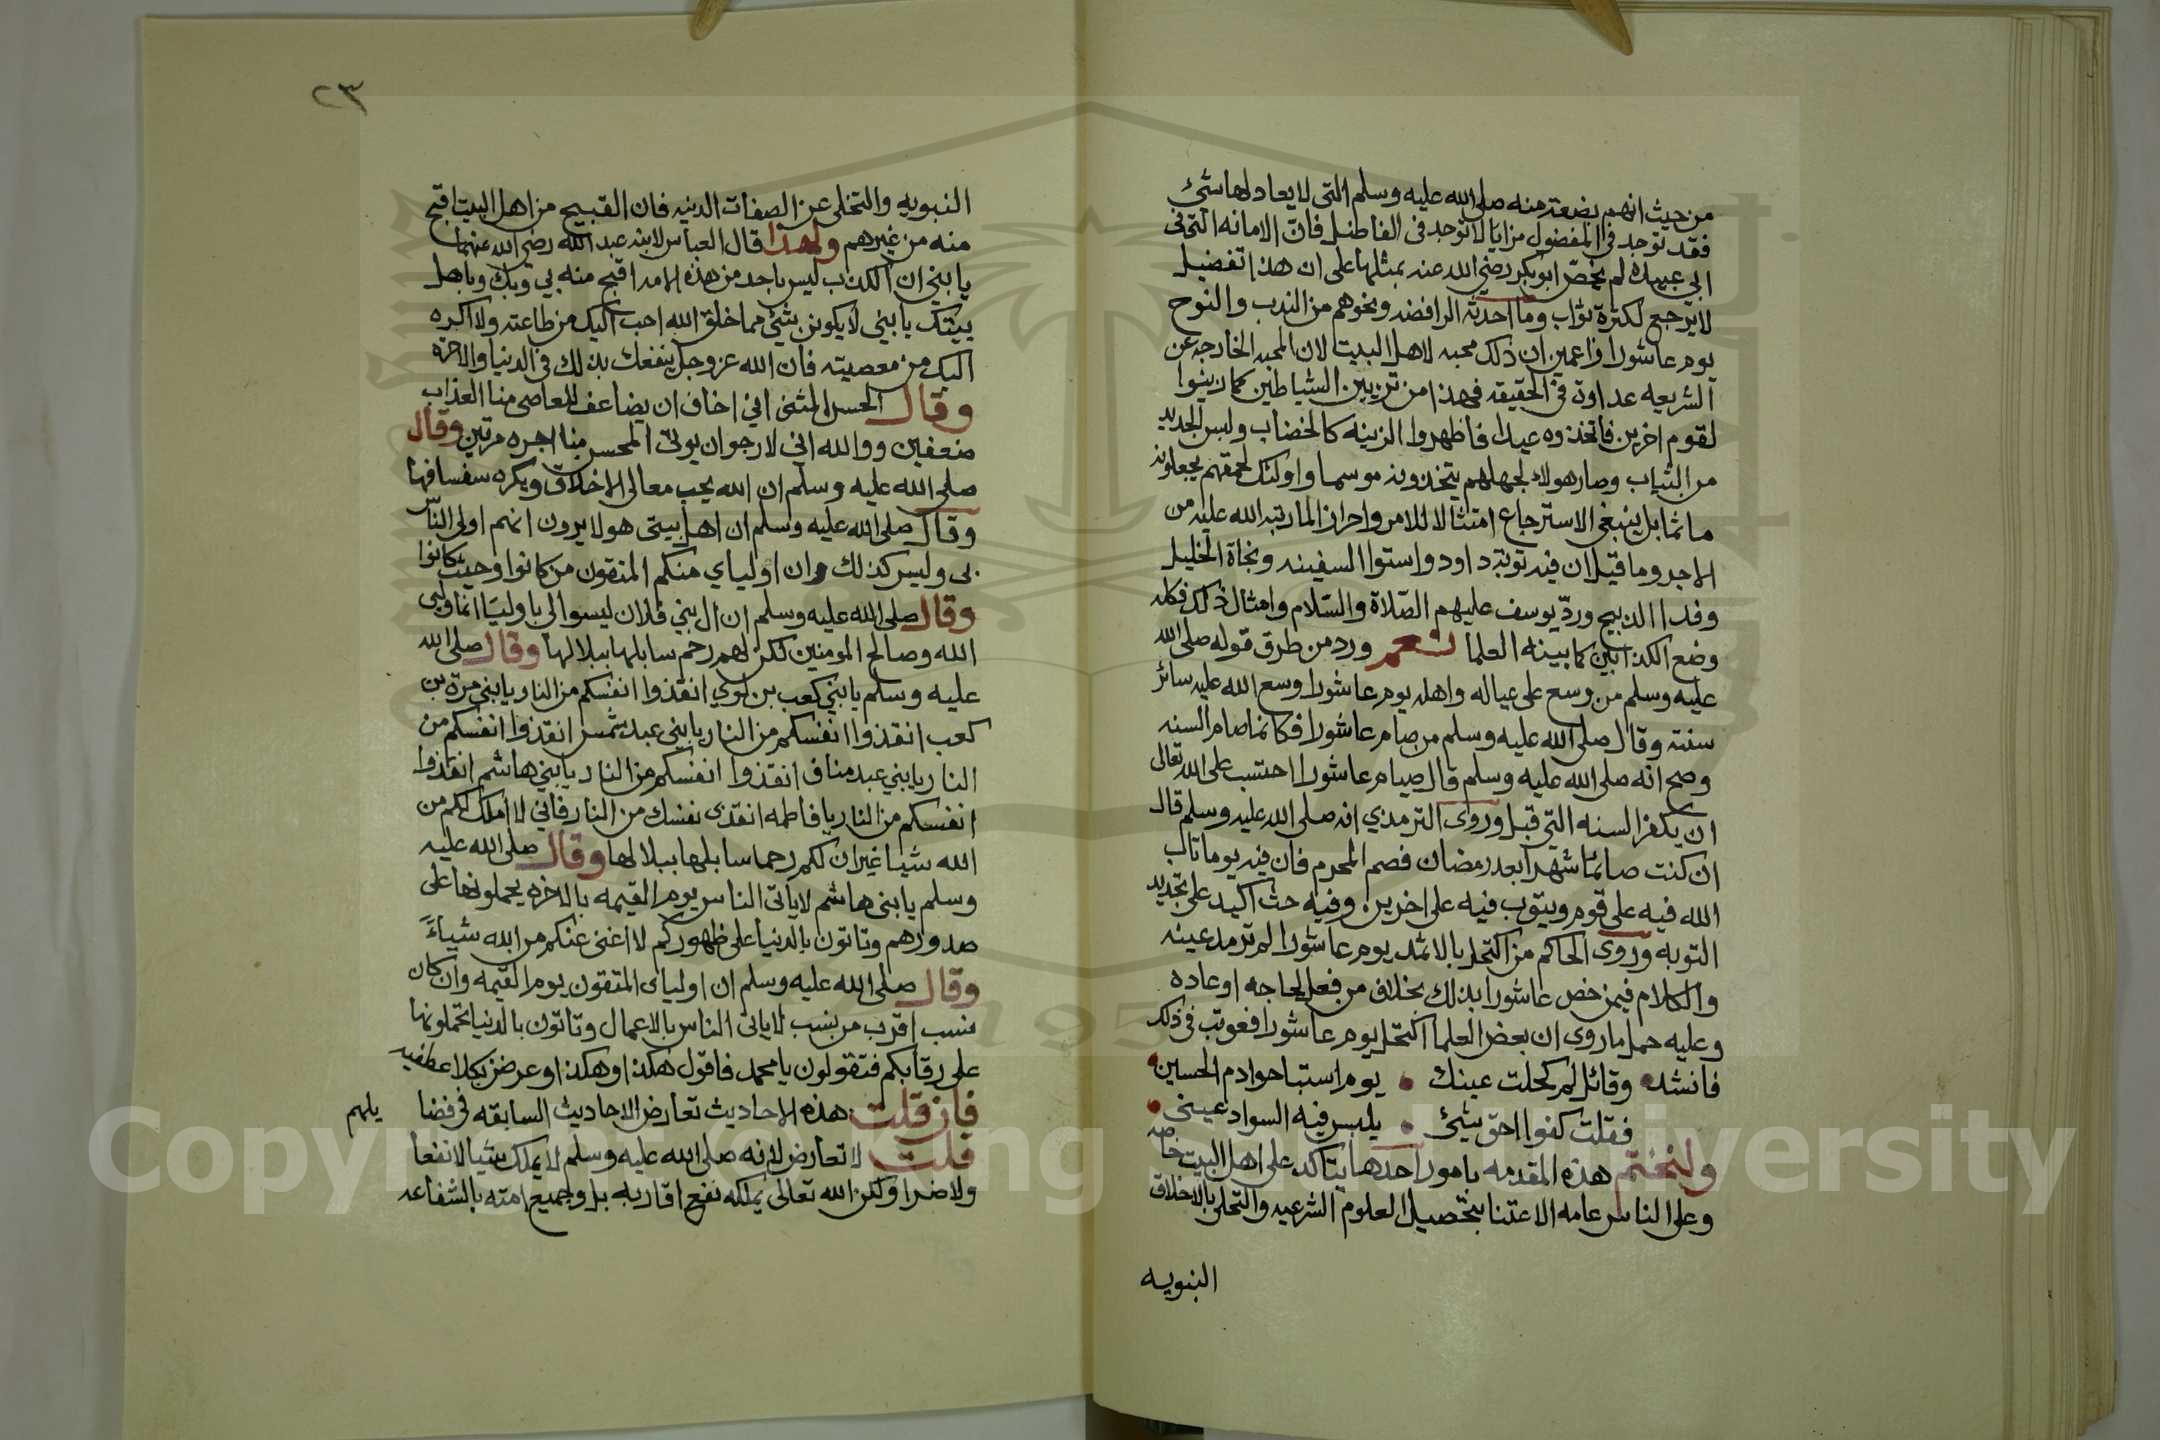 من حيث انهم بضعة منه صلى الله عليه وسلم التى لا يعادلها شئ
فقد توجد في المفضول مزايا لا توجد فى الفاضل فان الامانه التى فى
ابى عبيده لم يخص ابو بكر رضي الله عنه بمثلها على ان هذا تفضيل
لا يرجع لكثرة ثواب وما احدثه الرافضه ونحوهم من الندب والنوح
يوم عاشورا زاعمين ان ذلك محبه لاهل البيت لان المحبه الخارجه عن
الشريعه عداوة فى الحقيقه فهذا من تزيين الشياطين كما زينوا
لقوم اخرين فاتخذوه عيدا فاظهروا الزينه كالخضاب ولبس الجديد
من الثياب وصار هولاء لجهلهم يتخذونه موسما واولئك لحمقهم يجعلونه
ماتما بل ينبغي الاسترجاع امتثالا للامر واحرازا لما رتبه الله عليه من
الاجر وما قيل ان فيه توبة داود واستوا السفينه ونجاة الخليل
وفدا الذبيح وردّ يوسف عليهم الصّلاة والسّلام وامثال ذلك فكله
وضع الكذابين كما بينه العلما نعم ورد من طرق قوله صلى الله
عليه وسلم من وسع على عياله واهله يوم عاشورا وسع الله عليه سائر
سنته وقال صلى الله عليه وسلم من صام عاشورا فكانما صام السنه
وصح انه صلى الله عليه وسلم قال صيام عاشورا احتسب على الله تعالى
ان يكفر السنه التي قبله وروى الترمذي انه صلى الله عليه وسلم قال
ان كنت صائما شهرا بعد رمضان فصم المحرم فان فيه يوما تاب
الله فيه على قوم ويتوب فيه على اخرين وفيه حث اكيد على تجديد
التوبه وروى الحاكم من اكتحل بالاثمد يوم عاشورا لم ترمد عينه
والكلام فيمن خص عاشورا بذلك بخلاف من فعل لحاجه او عاده
وعليه حمل ما روى ان بعض العلما اكتحل يوم عاشورا فعوتب فى ذلك
فانشد وقائل لم كحلت عينك يوم استباحوا دم الحسين
فقلت كفوا احق بشئ يلبس فيه السواد عينى
ولنختم هذه المقدمه بامور احدها يتاكد على اهل البيت خاصه
وعلى الناس عامه الاعتنا بتحصيل العلوم الشرعيه والتحلى بالاخلاق
النبويه
٢٣
النبويه والتخلى عن الصفات الدنيه فان القبيح من اهل البيت اقبح
منه من غيرهم ولهذا قال العباس لابنه عبد الله رضى الله عنهما
يا بنى ان الكذب ليس باحد من هذه الامه اقبح منه بي وبك وباهل
بيتك يا بني لا يكونن بشئ مما خلق الله احب اليك من طاعته ولا اكره
اليك من معصيته فان الله عز وجل ينفعك بذلك فى الدنيا والاخره
وقال الحسن المثنى انى اخاف ان يضاعف للعاصى منا العذاب
ضعفين ووالله اني لارجوا ان يوتى المحسن منا اجره مرتين وقال
صلى الله عليه وسلم ان الله يحب معالى الاخلاق ويكره سفسافها
وقال صلى الله عليه وسلم ان اهل بيتى هولا يرون انهم اولى الناس
بى وليس كذلك ان اوليا​ي منكم المتقون من كانوا وحيث كانوا
وقال صلى الله عليه وسلم ان ال بني فلان ليسوا لي باوليا انما وليى
الله وصالح المومنين لكن لهم رحم سابلها ببلالها وقال صلى الله
عليه وسلم يا بني كعب بن لوي انقذوا انفسكم من النار يا بنى مرة بن
كعب انقذوا انفسكم من النار يا بني عبد شمس انقذوا انفسكم من
النار يا بني عبد مناف انقذوا انفسكم من النار يا بني هاشم انقذوا
انفسكم من النار يا فاطمه انقذى نفسك من النار فاني لا املك لكم من
الله شيا غير ان لكم رحما سابلها ببلالها وقال صلى الله عليه
وسلم يا بنى هاشم لا ياتى الناس يوم القيمه بالاخره يحملونها على
صدورهم وتاتون بالدنيا على ظهوركم لا اغنى عنكم من الله شياءً
وقال صلى الله عليه وسلم ان اوليا​ى المتقون يوم القيمه وان كان
نسب اقرب من نسب لا ياتى الناس بالاعمال وتاتون بالدنيا تحملونها
على رقابكم فتقولون يا محمد فاقول هكذا وهكذا وعرض بكلا عطفيه
فان قلت هذه الاحاديث تعارض الاحاديث السابقه فى فضا يلهم
قلت لا تعارض لانه صلى الله عليه وسلم لا يملك شيا لا نفعا
ولا ضرا ولكن الله تعالى يملكه نفع اقاربه بل وجميع امته بالشفاعه
1957
Copyright © King Saud University